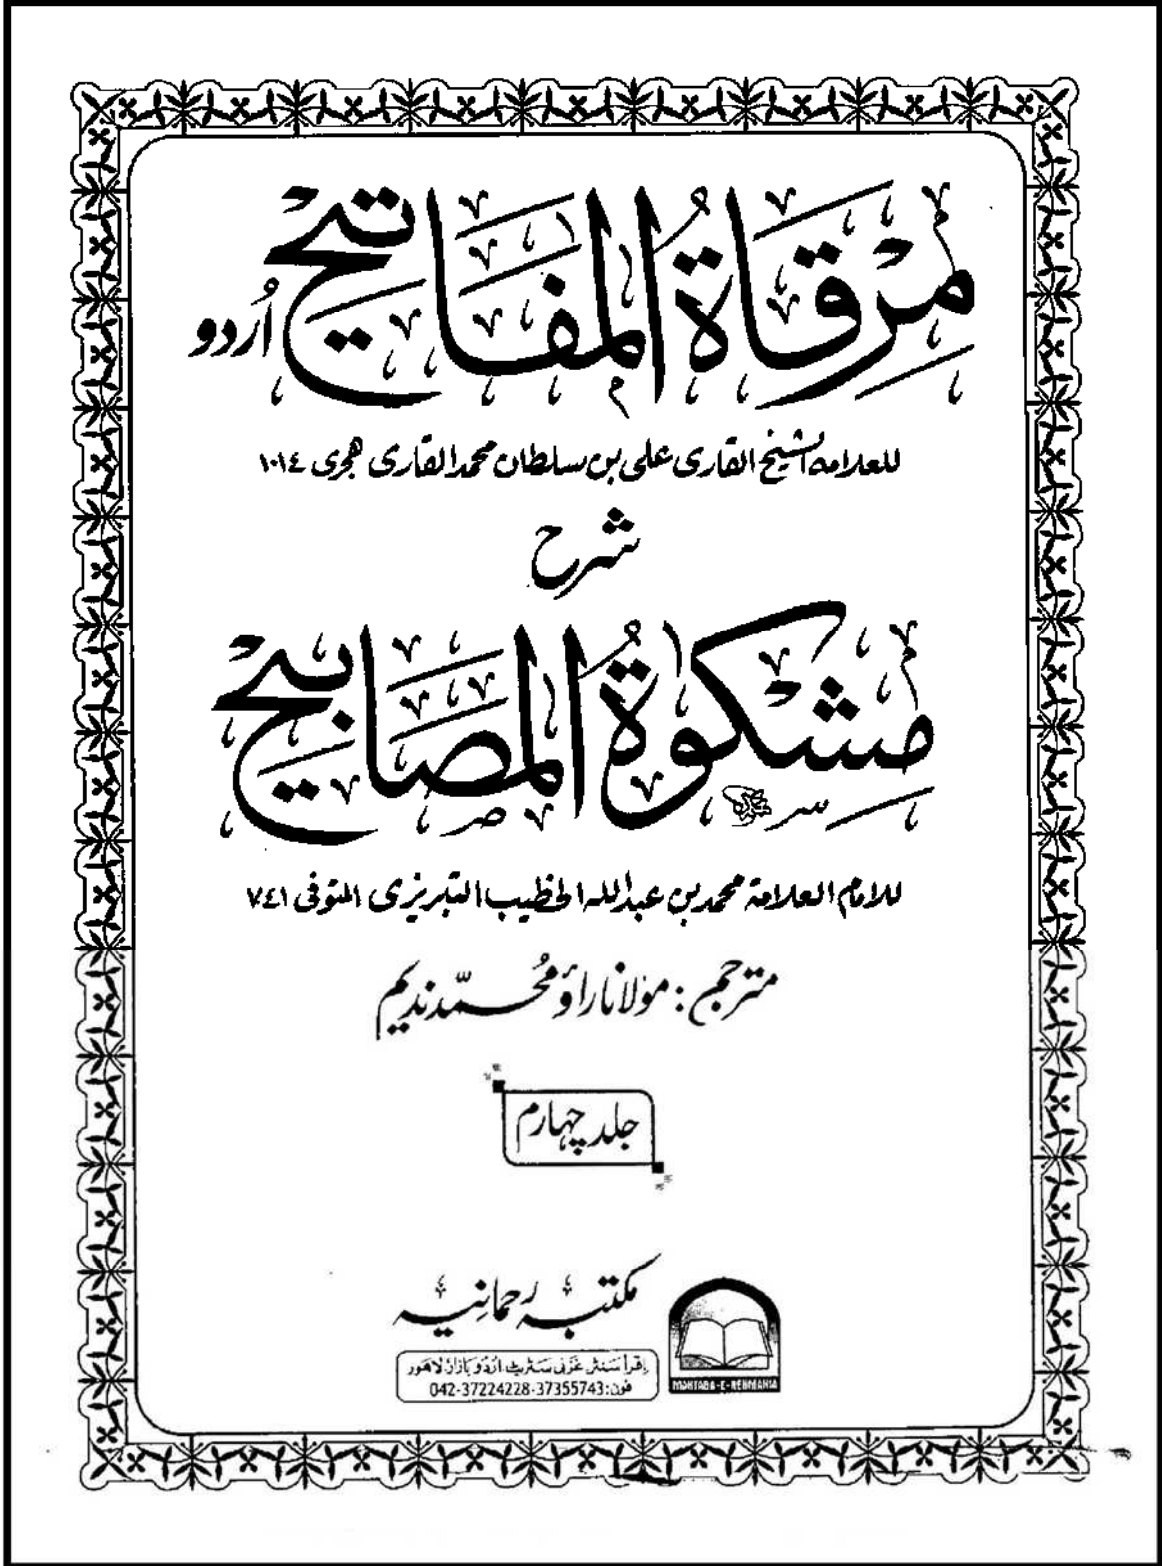 مرقاة المفاتيح اُردو
للعلامه الشيخ القاری علی بن سلطان محمد القاری ھجری ١٠١٤
شرح
مشكوة المصابيح
للامام العلامة محمد بن عبدالله الخطيب التبريزی المتوفى ٧٤١
مترجم : مولانا راؤ محمّد ندیم
جلد چہارم
مکتبہ رحمانیہ
اِقرأ سَنٹر غَزنی سَٹریٹ اُردُو بَازار لاھور
فون:042-37224228-37355743
MAKTABA-E-REHMANIA